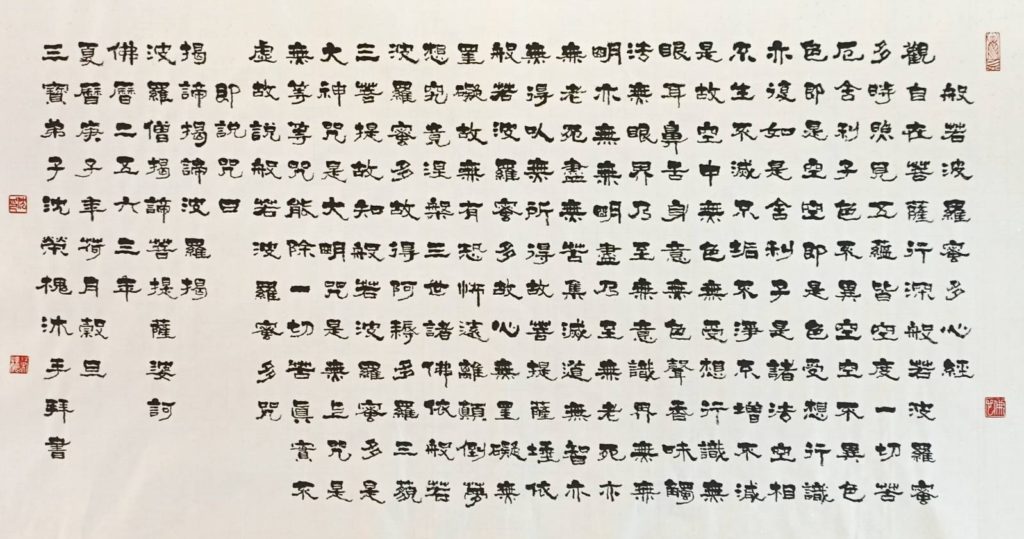 般若波羅蜜多心經
觀自在菩薩行深般若波羅蜜
多時照見五蘊皆空度一切苦
厄舍利子色不異空空不異色
色即是空空即是色受想行識
亦復如是舍利子是諸法空相
不生不滅不垢不淨不增不減
是故空中無色無受想行識無
眼耳鼻舌身意無色聲香味觸
法無眼界乃至無意識界無無
明亦無無明盡乃至無老死亦
無老死盡無苦集滅道無智亦
無得以無所得故菩提薩埵依
般若波羅蜜多故心無罣礙無
罣礙故無有恐怖遠離顛倒夢
想究竟涅槃三世諸佛依般若
波羅蜜多故得阿耨多羅三藐
三菩提故知般若波羅蜜多是
大神咒是大明咒是無上咒是
無等等咒能除一切苦眞實不
虛故說般若波羅蜜多咒
即說咒曰
揭諦揭諦波羅揭
波羅僧揭諦菩提薩婆訶
佛曆二五六三年
夏曆庚子年荷月穀旦
三寶弟子沈榮槐沐手拜書